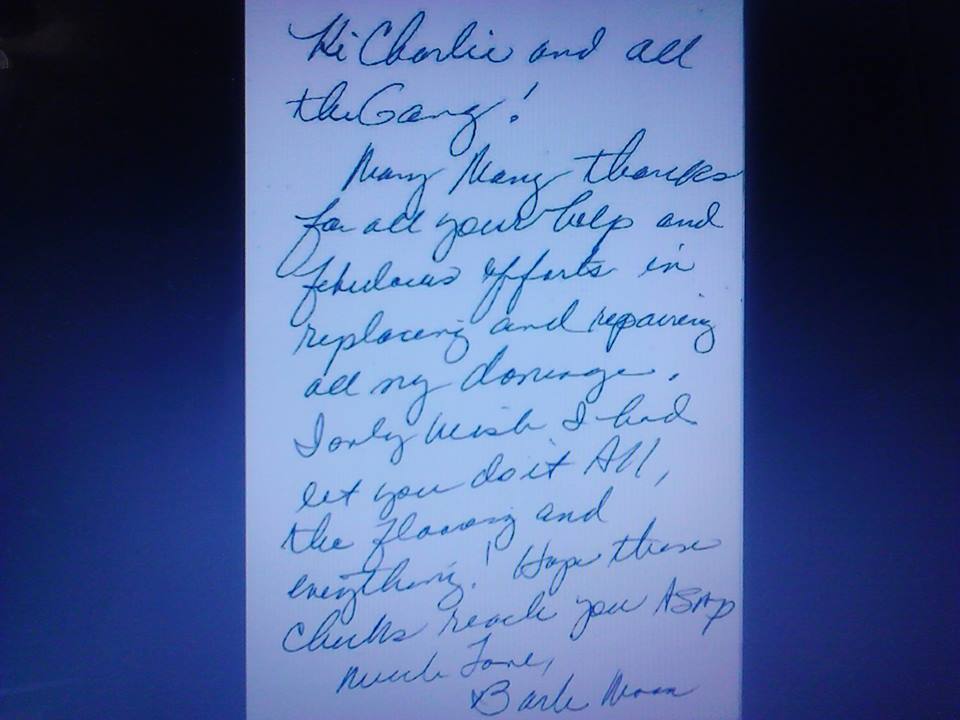 Hi Charlie and all
the Gang!
Many Many thanks
for all your help and
fabulous efforts in
replacing and repairing
all my damage.
I only wish I had
let you do it All,
the flooring and
everything! Hope these
checks reach you ASAP
Much Love,
Barb